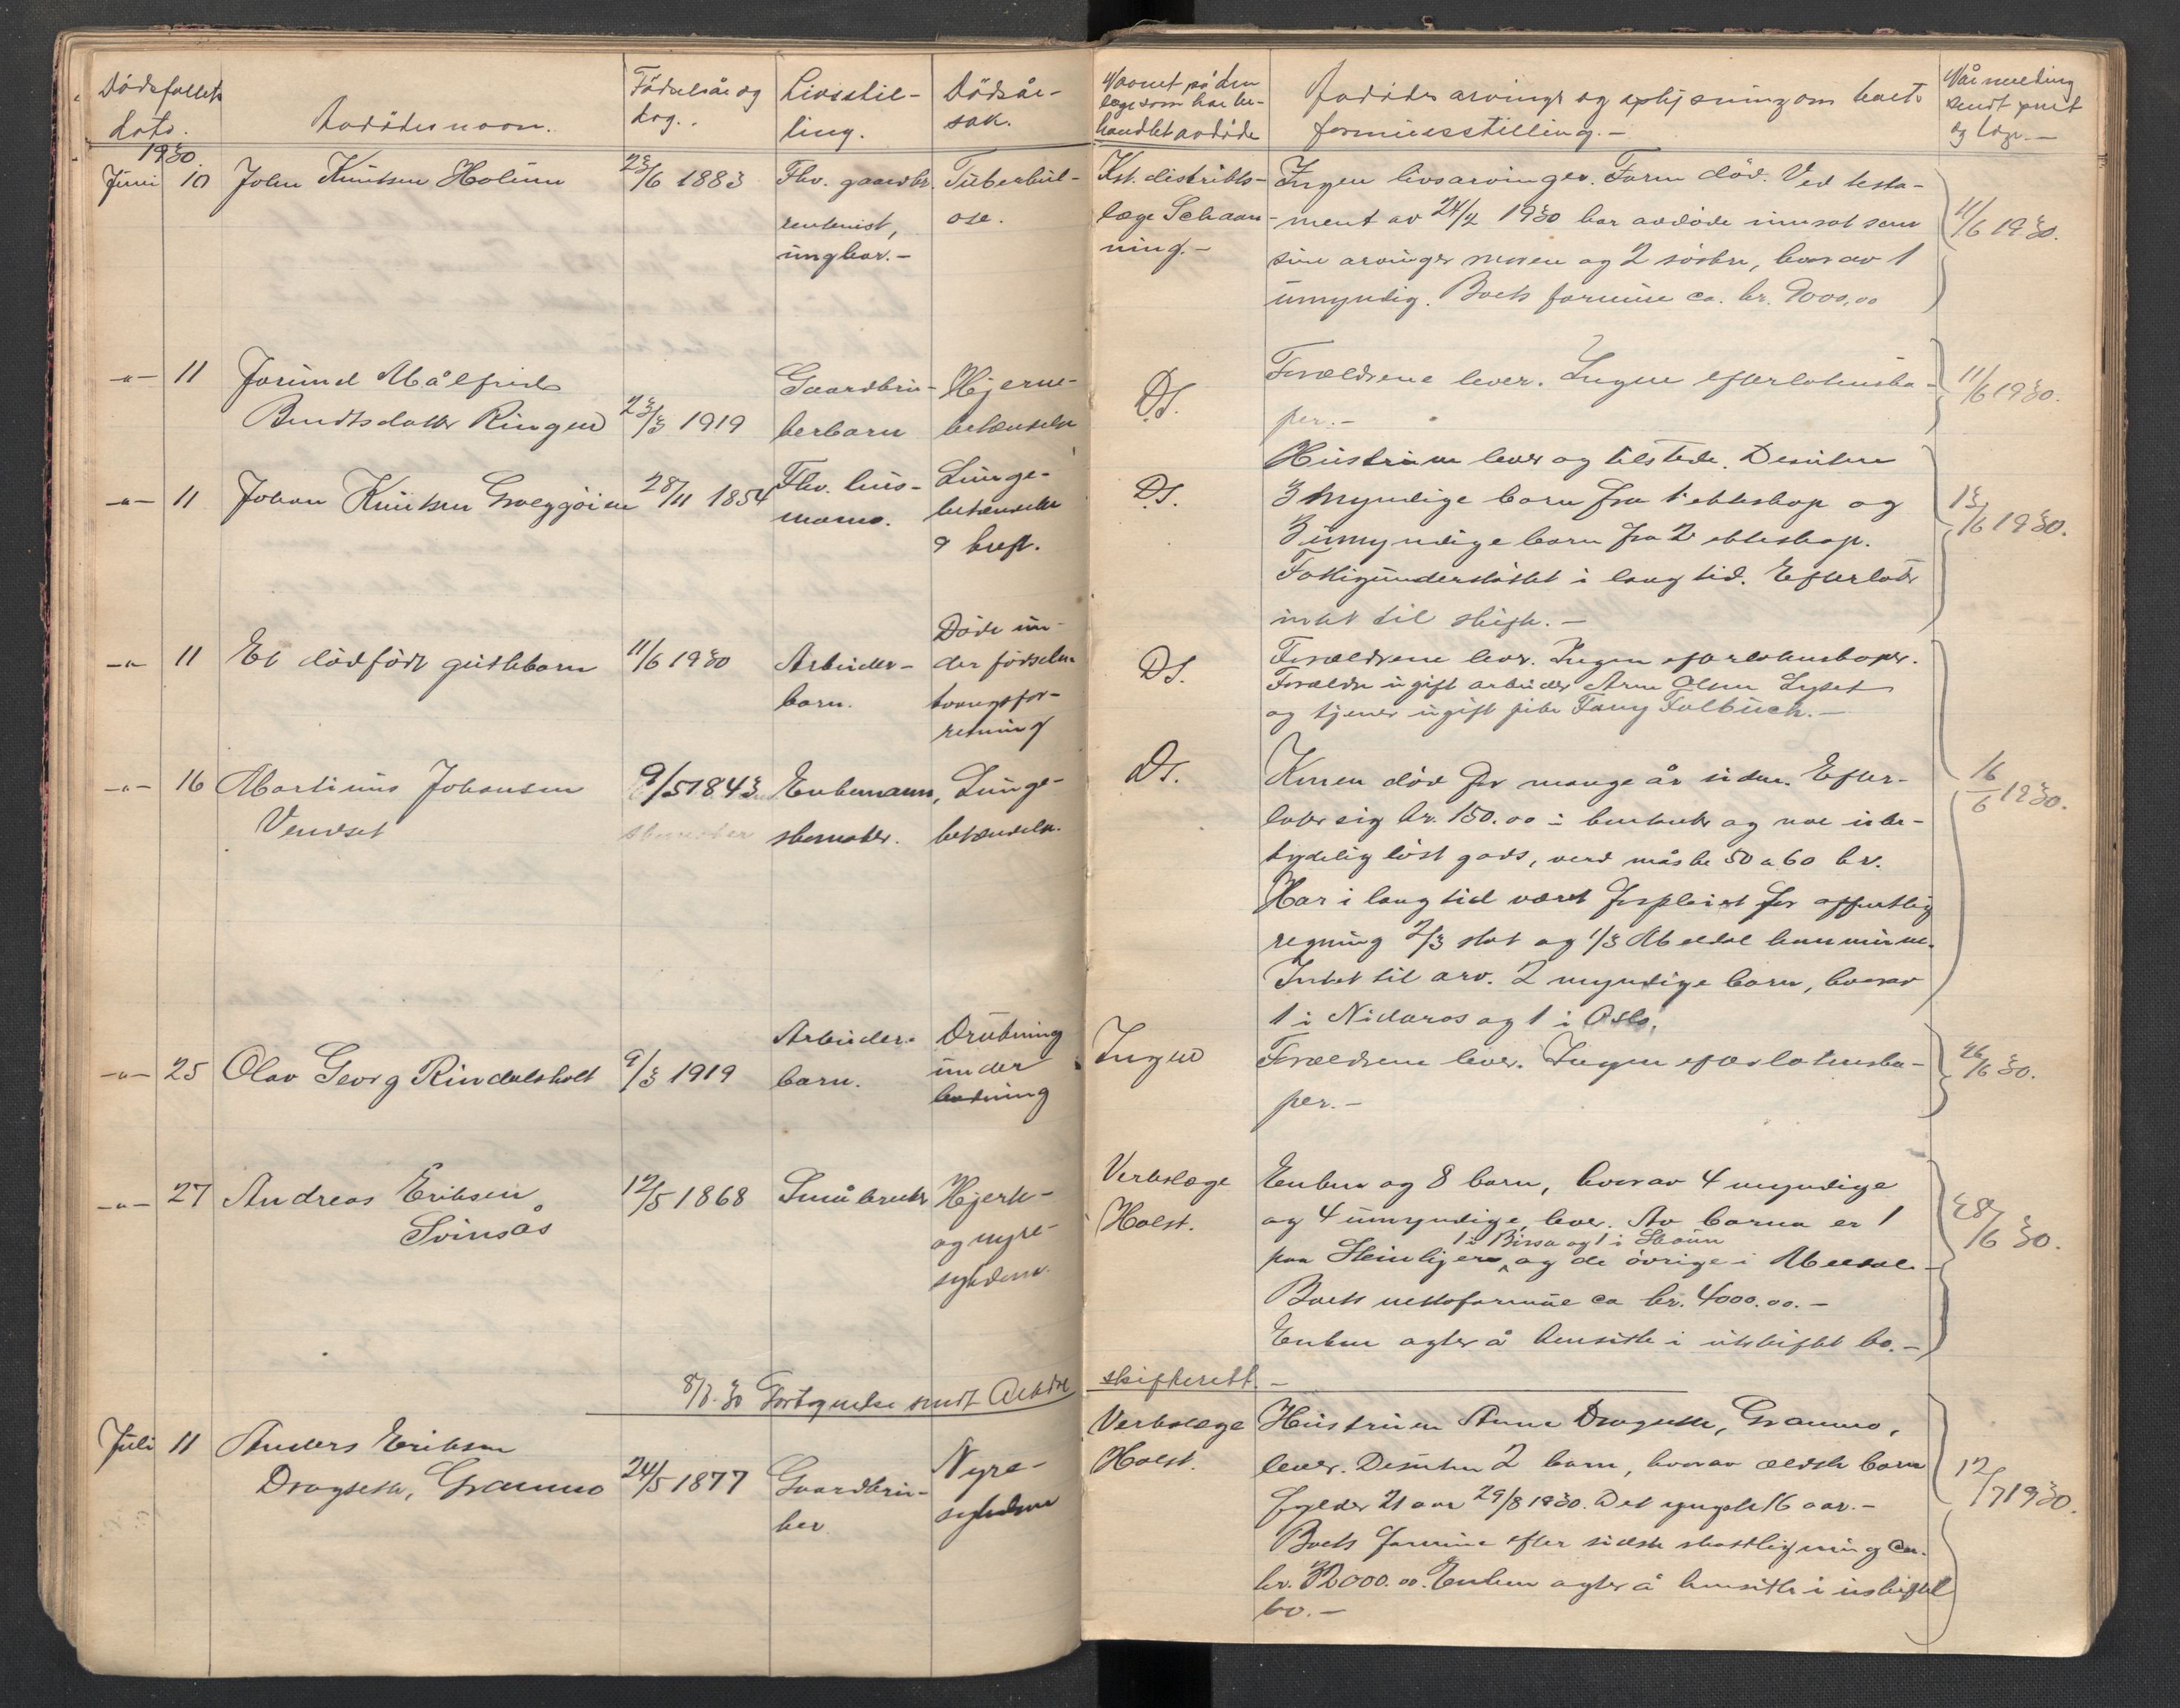 Dødsfallets
dato.
Avdødes navn.
Fødselsår og
dag.
Livsstil-
ling.
Dødsår-
sak.
Navnet på den
læge som har be-
handlet avdøde
Avdødes arvinger og oplysning om boets
formuesstilling.-
Når melding
sendt
1930
Juni 10 John Knutsen Holum 23/6 1883
Fhv. gaardbr.
rentenist,
ungkar.-
Tuberkul-
ose.
Kst. distrikts-
læge Schaan-
ning.-
Ingen livsarvinger. Faren död. Ved testa-
ment av 24/2 1930 har avdøde innsat som
sine arvinger moren og 2 søstre, hvorav 1
umyndig. Boets formue ca. kr. 9000,00
11/6 1930.
-"- 11 Jorund Målfrid
Bendtsdatter Ringen 23/3 1919
Gaardbru-
kerbarn
Hjerne-
betændelse
DS.
Forældrene lever. Ingen efterlatenska-
per.-
11/6 1930.
-"- 11 Johan Knutsen 28/11 1854
Fhv. hus-
mann.
Lunge-
betændelse
DS.
Hustruen lever og tilstede. Desuten
3 myndige barn fra 1 ekteskap og
3 umyndige barn fra 2 ekteskap.
Fattigunderstöttet i lang tid. Efterlater
intet til skifte.-
13/6 1930.
-"- 11 Et dödfödt guttebarn 11/6 1930
Arbeider-
barn.
Døde un-
der fødselen
tvangsfor-
retning
DS.
Forældrene lever. Ingen efterlatenskaper.
Forældre ugift arbeider Arne Olsen
og tjener ugift pike Fany Tolbuch.-
-"- 16 Martinus Johansen
Vendset
9/5 1843
Enkemann,
skomaker.
Lunge-
betændelse.
DS.
Konen død for mange år siden. Efter-
later sig kr. 150.00 i kontanter og noe ube-
tydelig löst gods, verd måske 50 a 60 kr.
Har i lang tid været forpleiet for offentlig
regning 2/3 stat og 1/3 Meldal kommune.
Intet til arv. 2 myndige barn, hvorav
1 i Nidaros og 1 i Oslo.
16/6 1930.
-"- 25 Olav Georg Rindalsholt 9/3 1919
Arbeider-
barn.
Drukning
under
badning
Ingen
Forældrene lever. Ingen efterlatenska-
per.-
26/6 30.
-"- 27 Andreas Eriksen
Svinsås
12/5 1868
Småbruker
Hjerte-
og nyre-
sykdom.
Verkslæge
Holst.
Enken og 8 barn, hvorav 4 myndige
og 4 umyndige, lever. Av barna er 1
1 i Birsa og 1 i Skaun
paa og de øvrige i Meldal.-
Boets nettoformue ca kr. 4000.00.-
Enken agter å hensitte i uskiftet bo.-
28/6 30.
8/7.30 Fortegnelse sendt Orkdal
skifterett.-
Juli 11 Anders Eriksen
Dragsette, Gramno 24/5 1877
Gaardbru-
ker
Nyre-
sykdom
Verkslæge
Holst.
Hustruen Anne Dragsette, Gramno,
lever. Desuten 2 barn, hvorav ældste barn
fylder 21 aar 29/8 1930. Det yngste 16 aar.-
Boets formue efter sidste skattligning ca.
kr. 32000.00. Enken agter å hensitte i uskiftet
bo.-
12/7 1930.